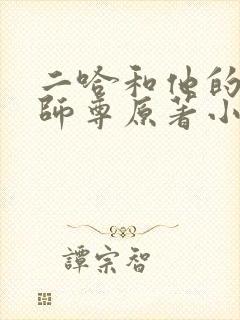 二哈和他的
師尊原著小
譚宗智